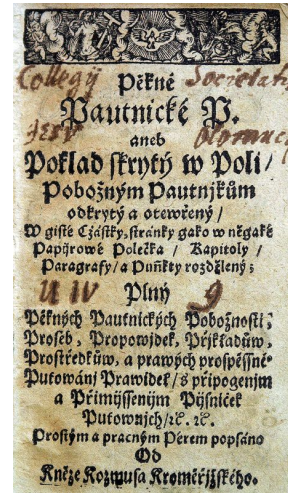 Collegij Societatis
Pěkné
Pautnické P.
Jesv Olomucij
aneb
Poklad skrytý w Poli/
Pobožným Pautnjkům
odkrytý a otewřený/
W gisté Cžástky, stránky gako w něgaké
Papjrowé Poléčka / Kapitoly /
Paragrafy/ a Puňkty rozdělený;
Plný
U IV 9
Pěkných Pautnických Pobožnostj;
Proseb, Propowjdek, Přjkladůw,
Prostředkůw, a prawých prospěssné°
Putowánj Prawidel/ s připogenjm
a Přimjssenijm Pjsniček
Putownjch/ ꝛc. ꝛc.
Prostým a pracným Pérem popsáno
Od
Kněze Kozmusa Kroměřjžského.